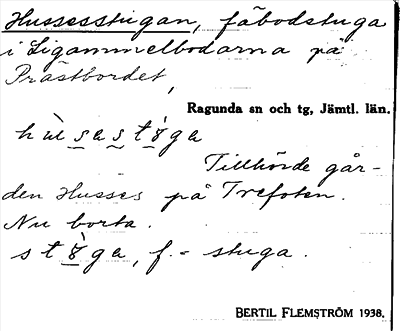 Hussesstugan, fäbodstuga
i Ligammelbodarna på
Prästbordet,
Ragunda sn och tg, Jämtl. län.
Tillhörde går-
den Husses på Trefoten.
Nu borta.
f. = stuga.
BERTIL FLEMSTRÖM 1938.